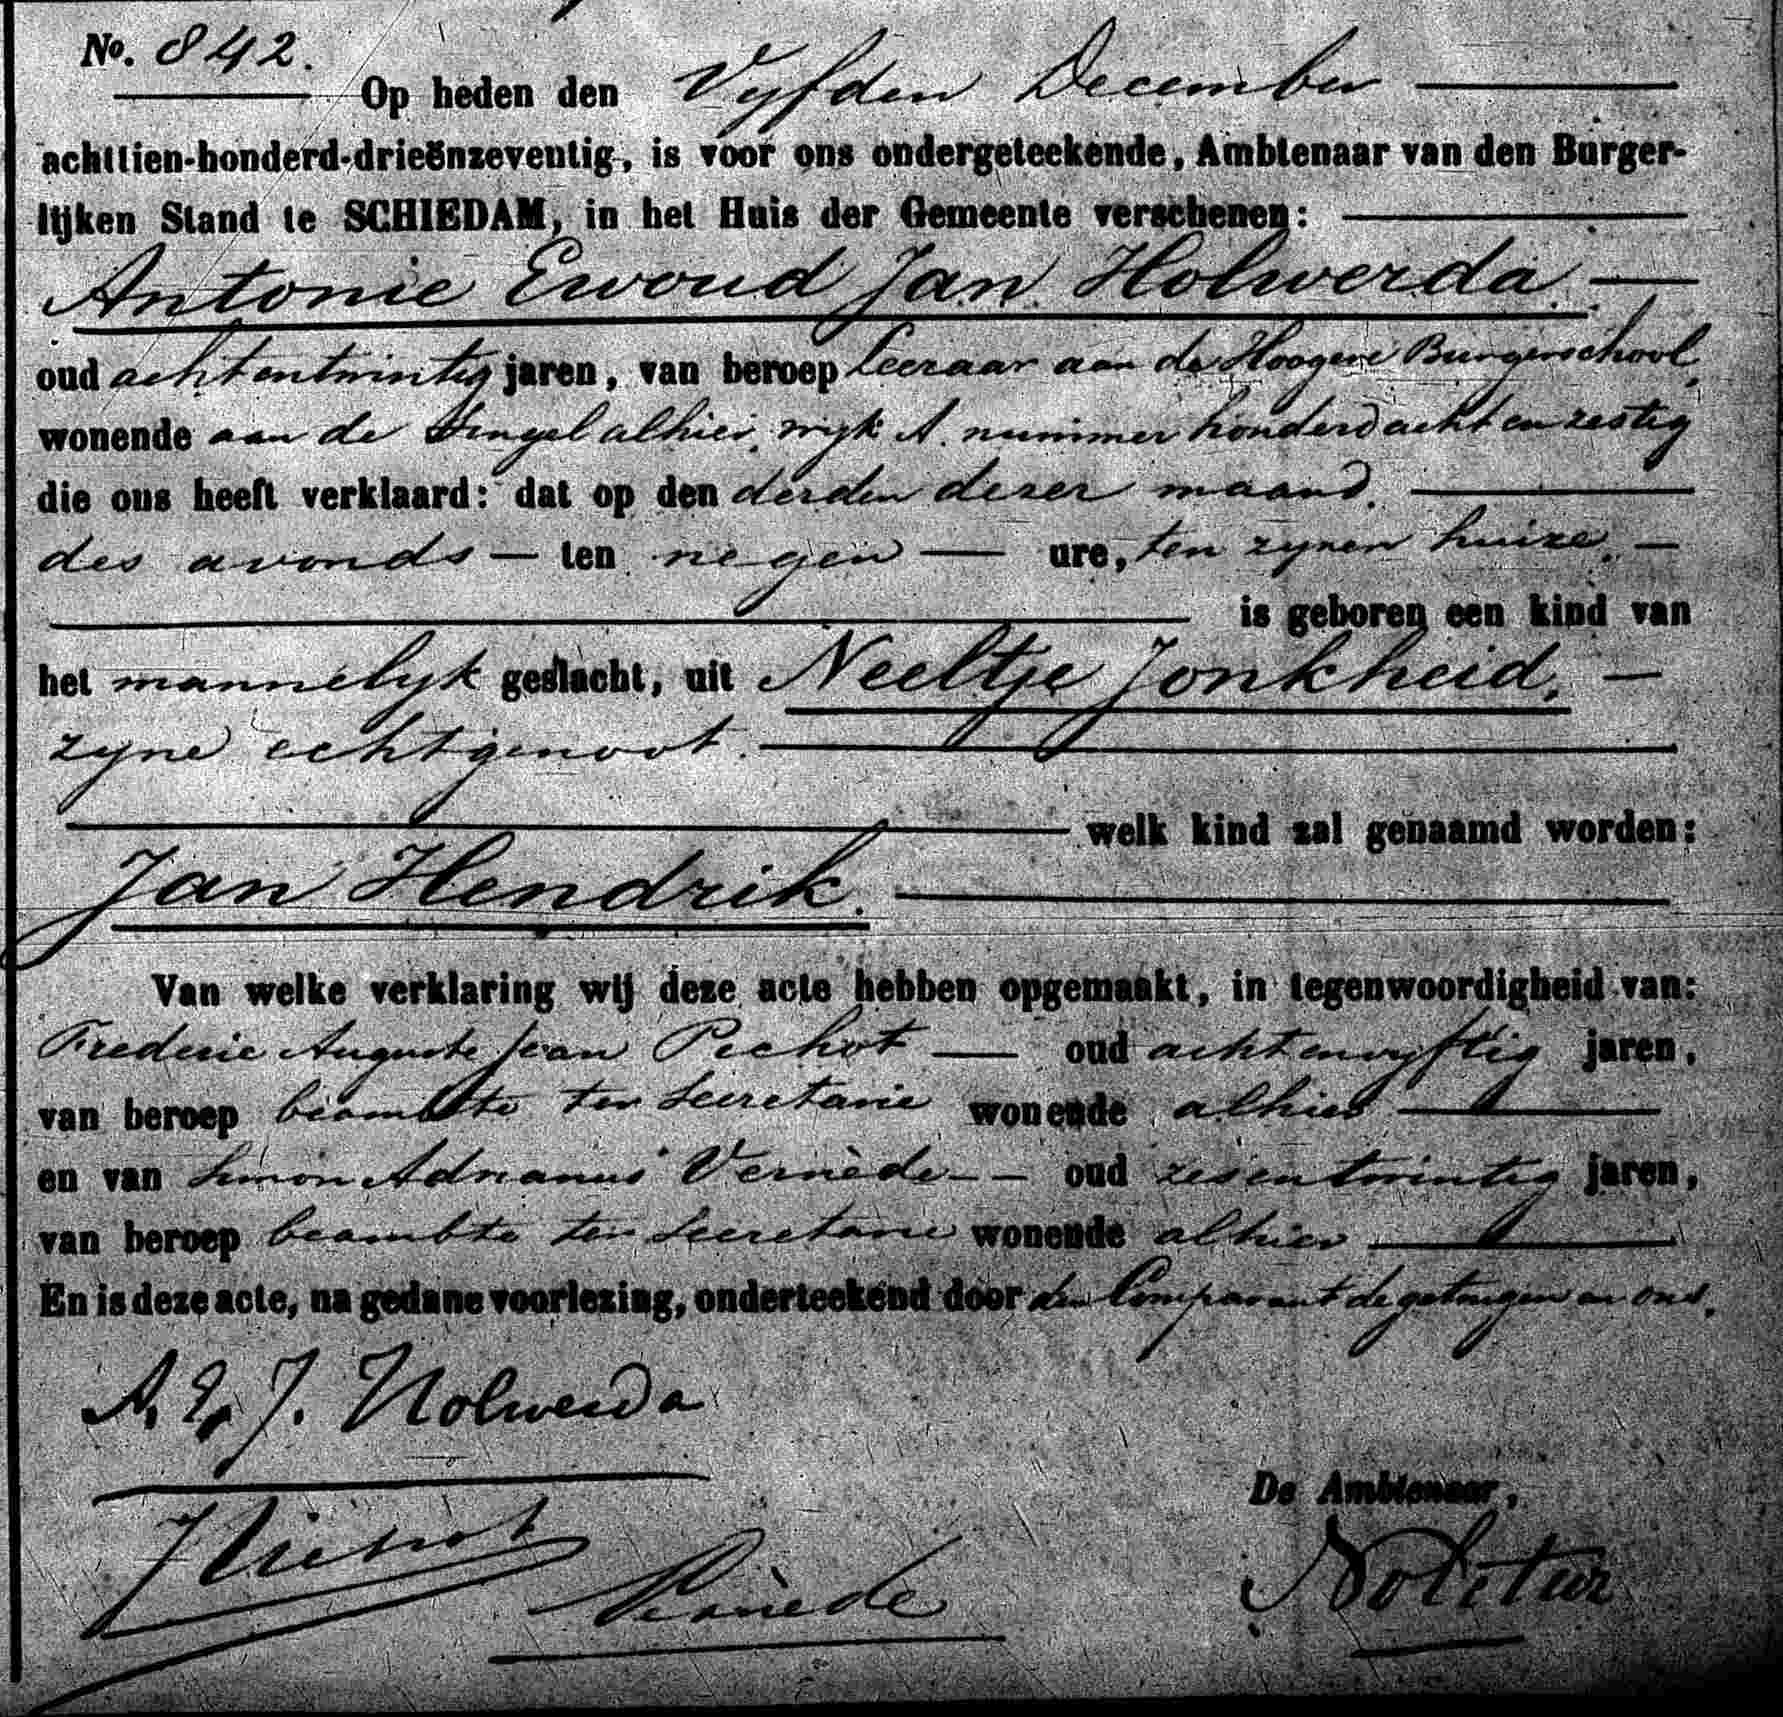 No. 842.
Op heden den Vyfden December
achttien-honderd-drieënzeventig, is voor ons ondergeteekende, Ambtenaar van den Burger-
lijken Stand te SCHIEDAM, in het Huis der Gemeente verschenen:
Antonie Ewoud Jan Holwerda.
oud achtentwintig jaren, van beroep Leeraar aan de Hoogere Burgerschool,
wonende aan de Singel alhier, wyk A. nummer honderd acht en zestig
die ons heeft verklaard: dat op den derden dezer maand.
des avonds ten negen ure, ten zynen huize.
is geboren een kind van
het mannelyk geslacht, uit Neeltje Jonkheid.
zyne echtgenoot.
welk kind zal genaamd worden:
Jan Hendrik.
Van welke verklaring wij deze acte hebben opgemaakt, in tegenwoordigheid van:
Frederic Auguste Jean Pechot oud achtenvyftig jaren,
van beroep beambte ter Secretarie wonende alhier
en van Simon Adrianus Vernède oud zesentwintig jaren,
van beroep beambte ter Secretarie wonende alhier
En is deze acte, na gedane voorlezing, onderteekend door den Comparant de getuigen en ons.
A. E. J. Holwerda
De Ambtenaar,
Vernède